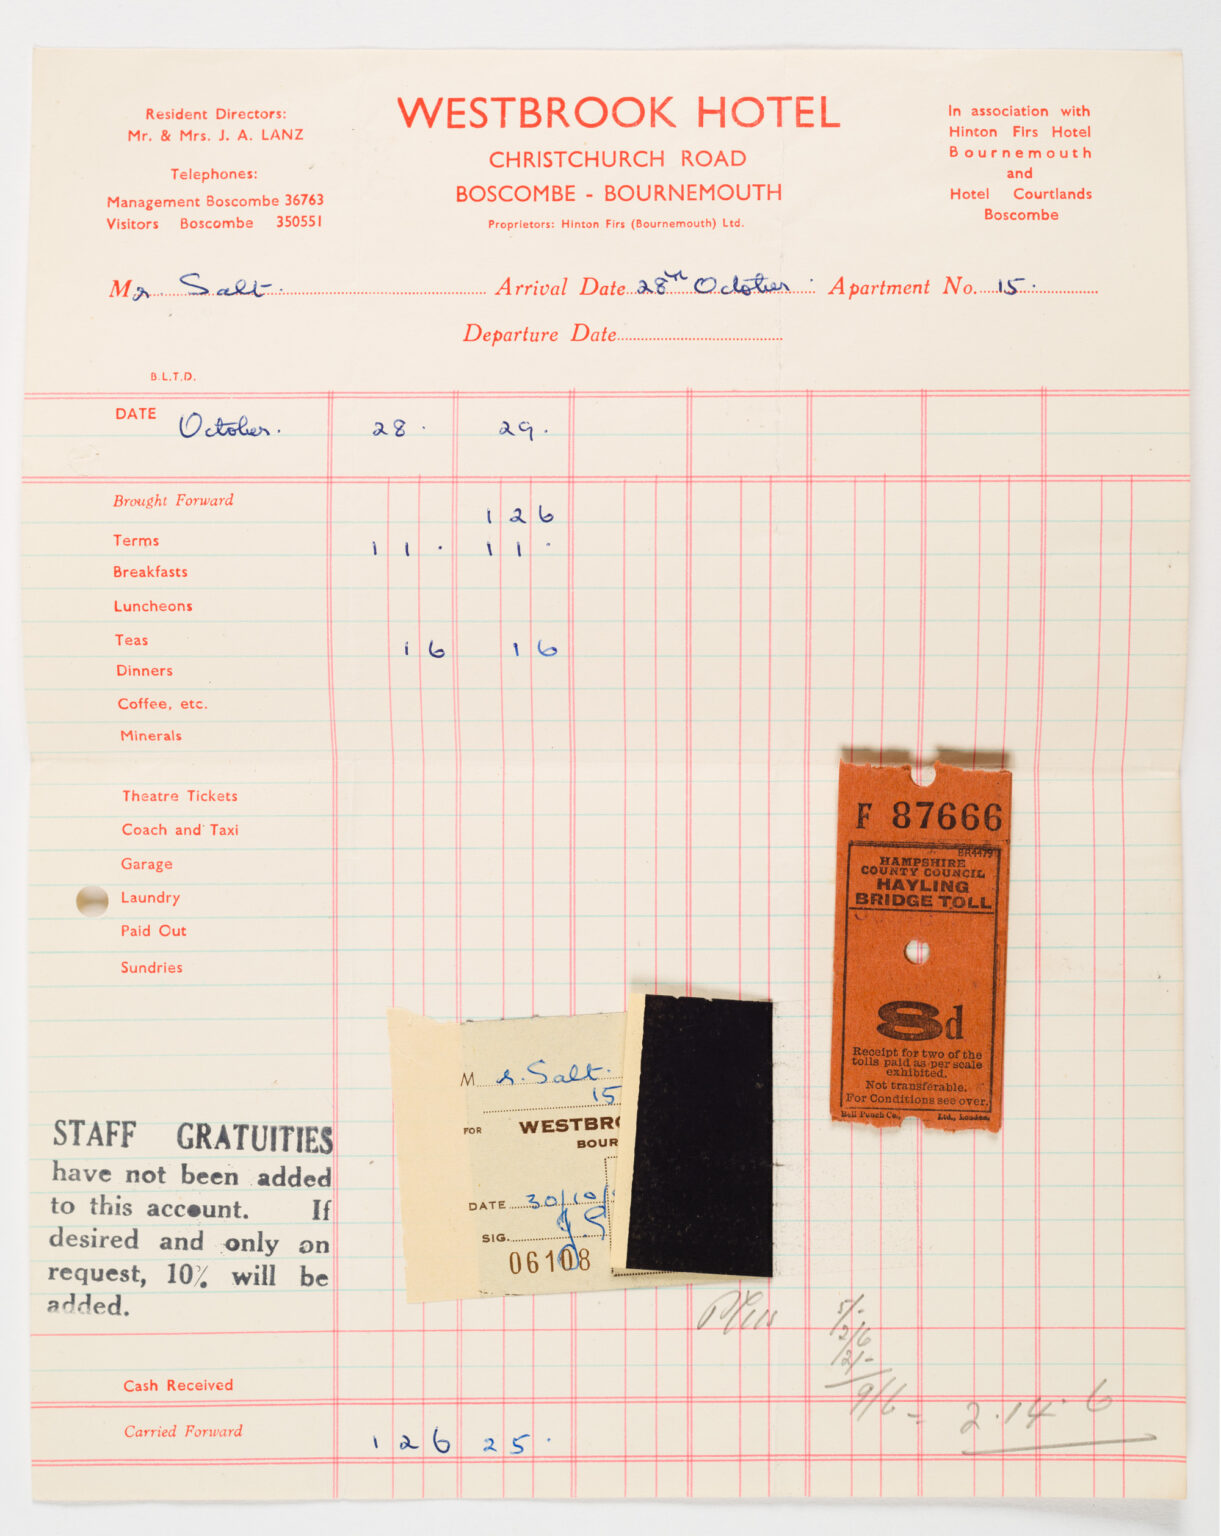 Resident Directors:
Mr. & Mrs. J. A. LANZ
Telephones:
Management Boscombe 36763
Visitors Boscombe 350551
WESTBROOK HOTEL
CHRISTCHURCH ROAD
BOSCOMBE - BOURNEMOUTH
Proprietors: Hinton Firs (Bournemouth) Ltd.
In association with
Hinton Firs Hotel
Bournemouth
and
Hotel Courtlands
Boscombe
Mr. Salt. Arrival Date 28th October Apartment No. 15.
Departure Date
B.L.T.D.
DATE October. 28. 29.
Brought Forward 1 2 6
Terms 1 1 . 1 1 .
Breakfasts
Luncheons
Teas 1 6 1 6
Dinners
Coffee, etc.
Minerals
Theatre Tickets
Coach and Taxi
Garage
Laundry
Paid Out
Sundries
F 87666
BR4479
HAMPSHIRE
COUNTY COUNCIL
HAYLING
BRIDGE TOLL
8d
Receipt for two of the
tolls paid as per scale
exhibited.
Not transferable.
For Conditions see over.
Bell Punch Co., Ltd., London.
Mr. Salt.
15
FOR WESTBRO
BOUR
DATE 30/10/
SIG.
06108
STAFF GRATUITIES
have not been added
to this account. If
desired and only on
request, 10% will be
added.
Plus
5/-
2/6
2/-
9/6 - 2.14.6
Cash Received
Carried Forward 1 2 6 2 5 .